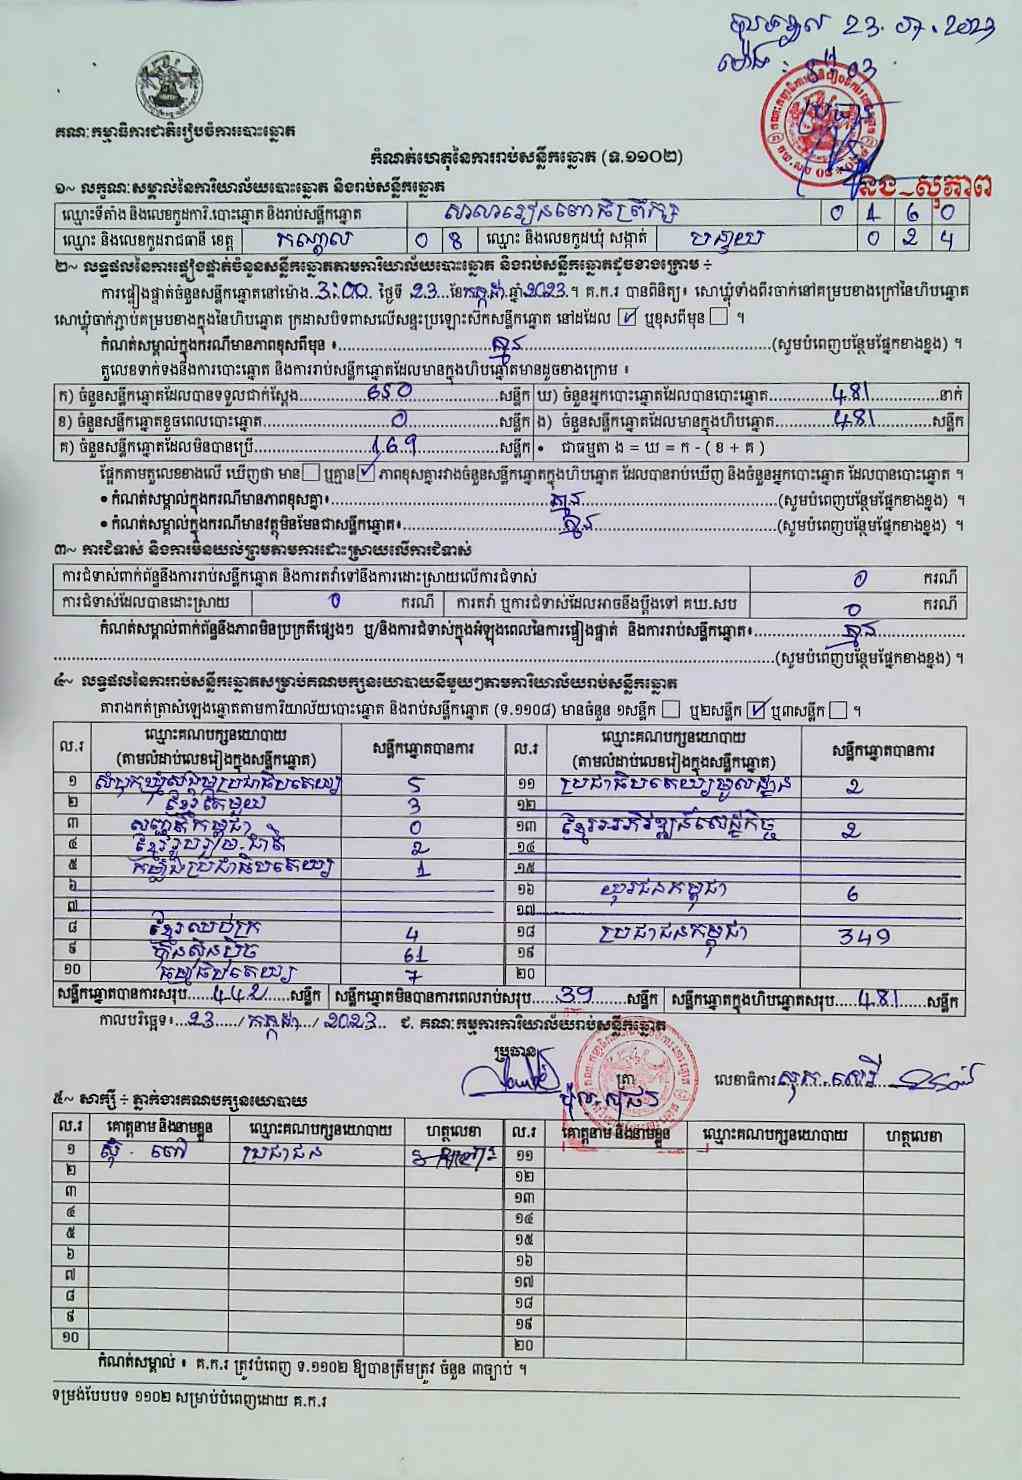 23.07.2023
ម៉ោង :
គណៈកម្មាធិការជាតិរៀបចំការបោះឆ្នោត
កំណត់ហេតុនៃការរាប់សន្លឹកឆ្នោត (ទ.១១០២)
និជ សុភាព
១~ លក្ខណៈសម្គាល់នៃការិយាល័យបោះឆ្នោត និងរាប់សន្លឹកឆ្នោត
ឈ្មោះទីតាំង និងលេខកូដការិ.បោះឆ្នោត និងរាប់សន្លឹកឆ្នោត សាលារៀនពោធិព្រឹក្ស 0 1 6 0
ឈ្មោះ និងលេខកូដរាជធានី ខេត្ត កណ្តាល 0 8 ឈ្មោះ និងលេខកូដឃុំ សង្កាត់ 0 2 4
២~ លទ្ធផលនៃការផ្ទៀងផ្ទាត់ចំនួនសន្លឹកឆ្នោតតាមការិយាល័យបោះឆ្នោត និងរាប់សន្លឹកឆ្នោតដូចខាងក្រោម ÷
ការផ្ទៀងផ្ទាត់ចំនួនសន្លឹកឆ្នោតនៅម៉ោង 3:00 ថ្ងៃទី 23 ខែ កក្កដា ឆ្នាំ 2023 ។ គ.ក.រ បានពិនិត្យ៖ សោឃ្លុំទាំងពីរចាក់នៅគម្របខាងក្រៅនៃហិបឆ្នោត
សោឃ្លុំចាក់ភ្ជាប់គម្របខាងក្នុងនៃហិបឆ្នោត ក្រដាសបិទពាសលើសន្ទះប្រឡោះស៊កសន្លឹកឆ្នោត នៅដដែល ☑ ឬខុសពីមុន ☐ ។
កំណត់សម្គាល់ក្នុងករណីមានភាពខុសពីមុន ៖ គ្មាន (សូមបំពេញបន្ថែមផ្នែកខាងខ្នង) ។
តួលេខទាក់ទងនឹងការបោះឆ្នោត និងការរាប់សន្លឹកឆ្នោតដែលមានក្នុងហិបឆ្នោតមានដូចខាងក្រោម ៖
ក) ចំនួនសន្លឹកឆ្នោតដែលបានទទួលជាក់ស្តែង 650 សន្លឹក ឃ) ចំនួនអ្នកបោះឆ្នោតដែលបានបោះឆ្នោត 481 នាក់
ខ) ចំនួនសន្លឹកឆ្នោតខូចពេលបោះឆ្នោត 0 សន្លឹក ង) ចំនួនសន្លឹកឆ្នោតដែលមានក្នុងហិបឆ្នោត 481 សន្លឹក
គ) ចំនួនសន្លឹកឆ្នោតដែលមិនបានប្រើ 169 សន្លឹក • ជាធម្មតា ង = ឃ = ក - ( ខ + គ )
ផ្អែកតាមតួលេខខាងលើ ឃើញថា មាន ☐ ឬគ្មាន ☑ ភាពខុសគ្នារវាងចំនួនសន្លឹកឆ្នោតក្នុងហិបឆ្នោត ដែលបានរាប់ឃើញ និងចំនួនអ្នកបោះឆ្នោត ដែលបានបោះឆ្នោត ។
• កំណត់សម្គាល់ក្នុងករណីមានភាពខុសគ្នា៖ គ្មាន (សូមបំពេញបន្ថែមផ្នែកខាងខ្នង) ។
• កំណត់សម្គាល់ក្នុងករណីមានវត្ថុមិនមែនជាសន្លឹកឆ្នោត៖ គ្មាន (សូមបំពេញបន្ថែមផ្នែកខាងខ្នង) ។
៣~ ការជំទាស់ និងការមិនយល់ព្រមតាមការដោះស្រាយលើការជំទាស់
ការជំទាស់ពាក់ព័ន្ធនឹងការរាប់សន្លឹកឆ្នោត និងការតវ៉ាទៅនឹងការដោះស្រាយលើការជំទាស់ 0 ករណី
ការជំទាស់ដែលបានដោះស្រាយ 0 ករណី ការតវ៉ា ឬការជំទាស់ដែលអាចនឹងប្តឹងទៅ គឃ.សប 0 ករណី
កំណត់សម្គាល់ពាក់ព័ន្ធនឹងភាពមិនប្រក្រតីផ្សេងៗ ឬ/និងការជំទាស់ក្នុងអំឡុងពេលនៃការផ្ទៀងផ្ទាត់ និងការរាប់សន្លឹកឆ្នោត៖ គ្មាន
(សូមបំពេញបន្ថែមផ្នែកខាងខ្នង) ។
៤~ លទ្ធផលនៃការរាប់សន្លឹកឆ្នោតសម្រាប់គណបក្សនយោបាយនីមួយៗតាមការិយាល័យរាប់សន្លឹកឆ្នោត
តារាងកត់ត្រាសំឡេងឆ្នោតតាមការិយាល័យបោះឆ្នោត និងរាប់សន្លឹកឆ្នោត (ទ.១១០៨) មានចំនួន ១សន្លឹក ☐ ឬ២សន្លឹក ☑ ឬ៣សន្លឹក ☐ ។
ល.រ ឈ្មោះគណបក្សនយោបាយ (តាមលំដាប់លេខរៀងក្នុងសន្លឹកឆ្នោត) សន្លឹកឆ្នោតបានការ ល.រ ឈ្មោះគណបក្សនយោបាយ (តាមលំដាប់លេខរៀងក្នុងសន្លឹកឆ្នោត) សន្លឹកឆ្នោតបានការ
១ សំបុកឃ្មុំសង្គមប្រជាធិបតេយ្យ 5 ១១ ប្រជាធិបតេយ្យមូលដ្ឋាន 2
២ ខ្មែរតែមួយ 3 ១២
៣ សញ្ជាតិកម្ពុជា 0 ១៣ ខ្មែរអភិវឌ្ឍន៍សេដ្ឋកិច្ច 2
៤ ខ្មែររួបរួមជាតិ 2 ១៤
៥ កម្លាំងប្រជាធិបតេយ្យ 1 ១៥
៦ ១៦ យុវជនកម្ពុជា 6
៧ ១៧
៨ ខ្មែរឈប់ក្រ 4 ១៨ ប្រជាជនកម្ពុជា 349
៩ ហ៊្វុនស៊ិនប៉ិច 61 ១៩
១០ ធម្មាធិបតេយ្យ 7 ២០
សន្លឹកឆ្នោតបានការសរុប 442 សន្លឹក សន្លឹកឆ្នោតមិនបានការពេលរាប់សរុប 39 សន្លឹក សន្លឹកឆ្នោតក្នុងហិបឆ្នោតសរុប 481 សន្លឹក
កាលបរិច្ឆេទ៖ 23 / កក្កដា / 2023 ជ. គណៈកម្មការការិយាល័យរាប់សន្លឹកឆ្នោត
ប្រធាន
ត្រា លេខាធិការ
៥~ សាក្សី ÷ ភ្នាក់ងារគណបក្សនយោបាយ
ល.រ គោត្តនាម និងនាមខ្លួន ឈ្មោះគណបក្សនយោបាយ ហត្ថលេខា ល.រ គោត្តនាម និងនាមខ្លួន ឈ្មោះគណបក្សនយោបាយ ហត្ថលេខា
១ ប្រជាជន ១១
២ ១២
៣ ១៣
៤ ១៤
៥ ១៥
៦ ១៦
៧ ១៧
៨ ១៨
៩ ១៩
១០ ២០
កំណត់សម្គាល់ ៖ គ.ក.រ ត្រូវបំពេញ ទ.១១០២ ឱ្យបានត្រឹមត្រូវ ចំនួន ៣ច្បាប់ ។
ទម្រង់បែបបទ ១១០២ សម្រាប់បំពេញដោយ គ.ក.រ